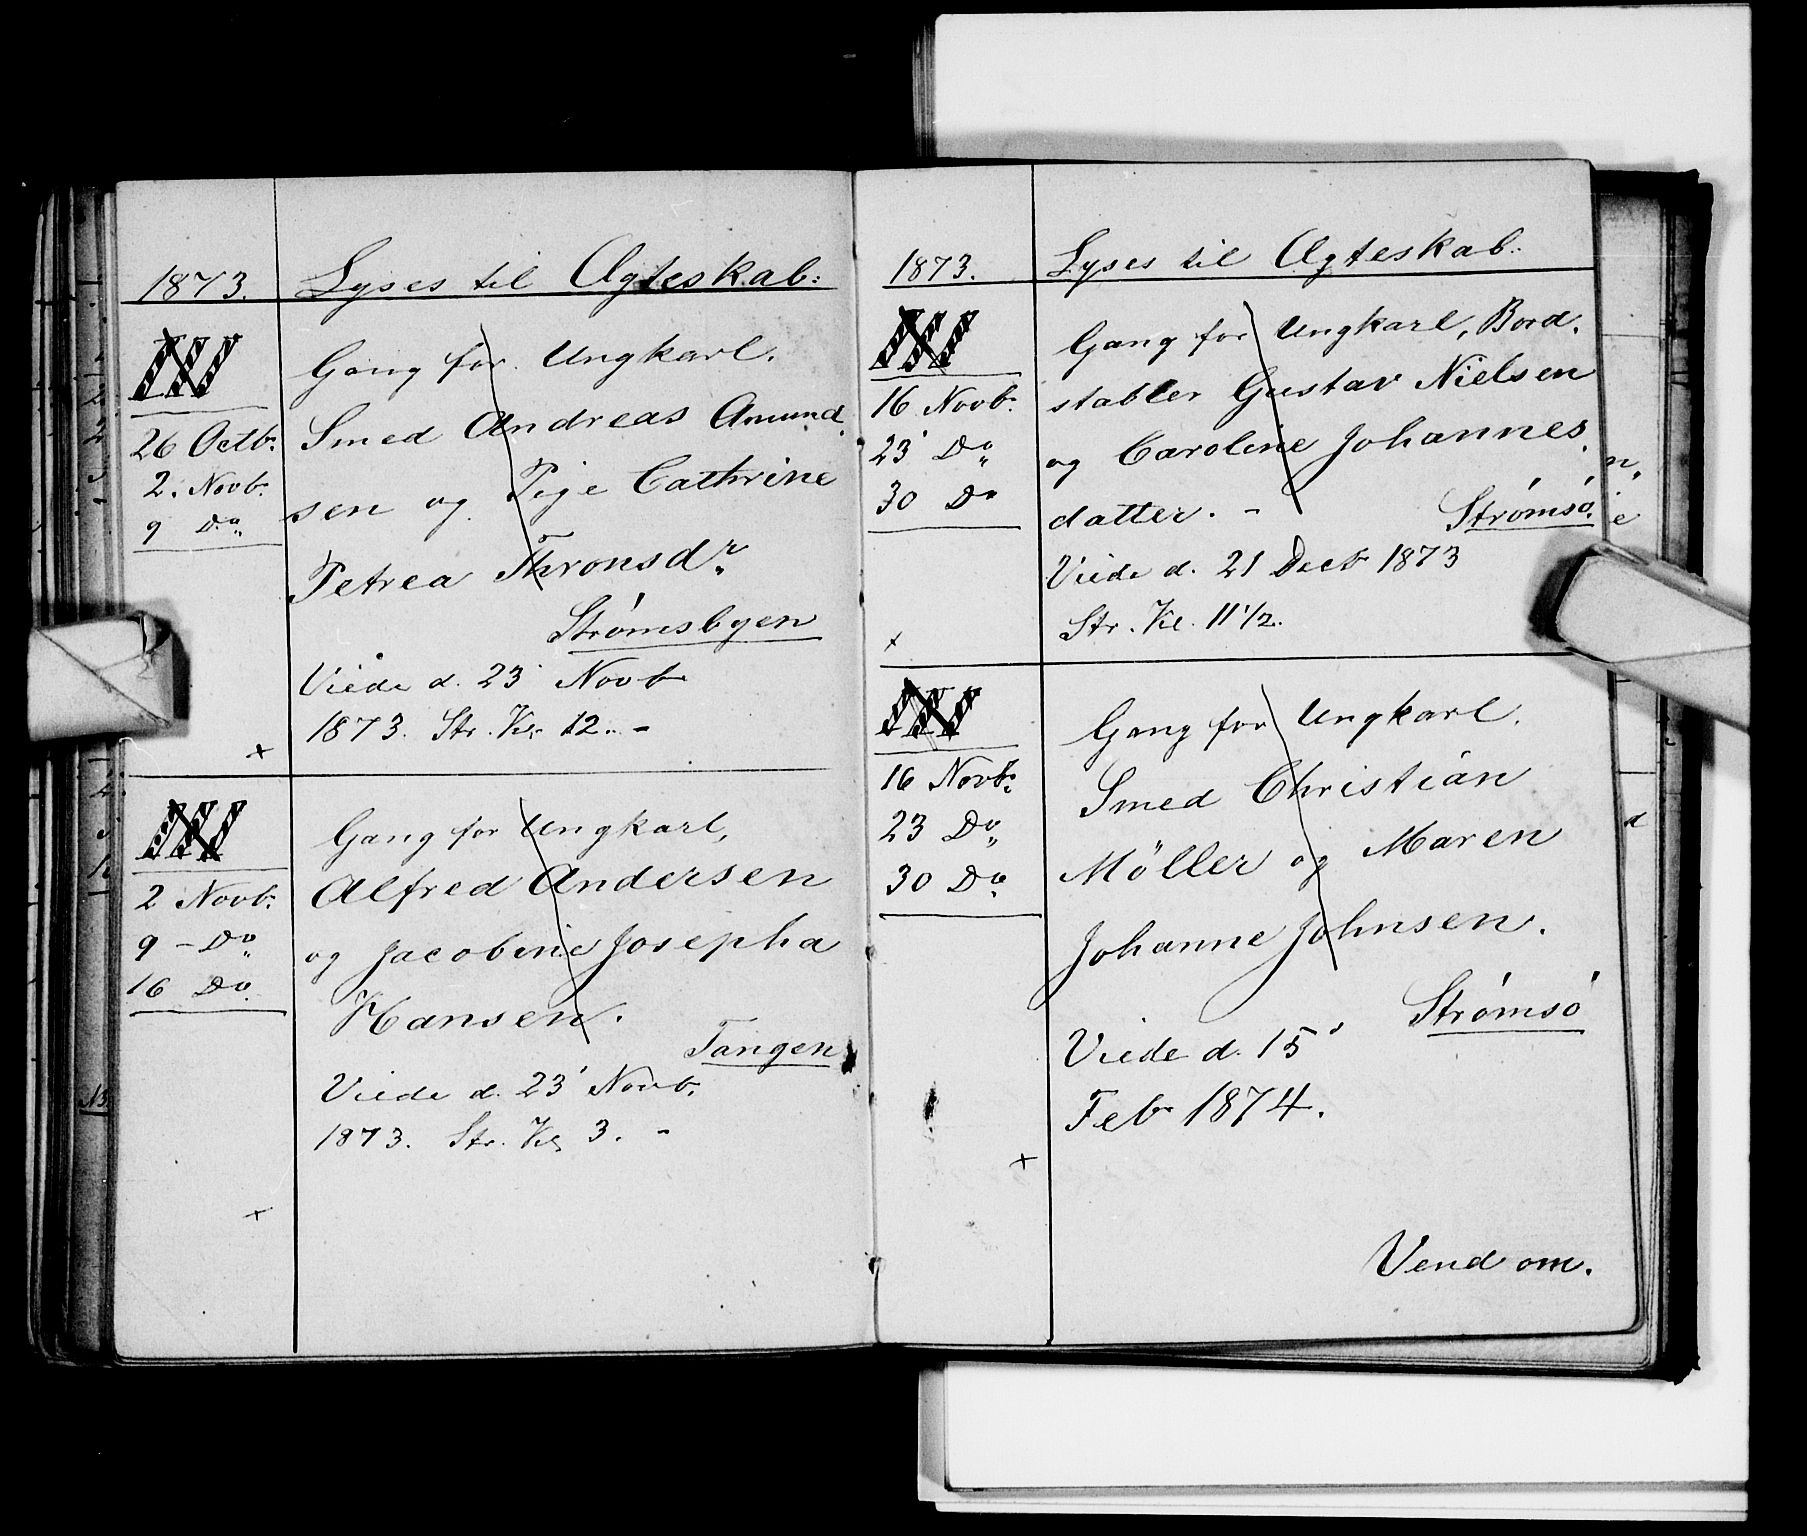 1873. Lyses til Ægteskab:
Gang for Ungkarl.
26 Octbr. Smed Andreas Amund-
2. Novb. sen og Pige Cathrine
9 Do
Petrea Thronsdr.
Strømsbyen
Viede d. 23 Novb
1873. Str. Kl. 12. -
+
Gang for Ungkarl,
2 Novb. Alfred Andersen
9 - Do og Jacobine Josepha
16 Do Hansen.
Tangen
Viede d. 23 Novb.
1873. Str. Kl. 3. -
+
1873. Lyses til Ægteskab:
Gang for Ungkarl, Bord-
16 Novb. stabler Gustav Nielsen
23 Do og Caroline Johannes-
30 Do datter. -
Strømsö.
Viede d. 21 Decb 1873
Str. Kl. 11 1/2.
+
Gang for Ungkarl.
16 Novb. Smed Christian
23 Do Möller og Maren
30 Do
Johanne Johnsen.
Strømsö
Viede d. 15
Feb 1874.
+
Vend om.